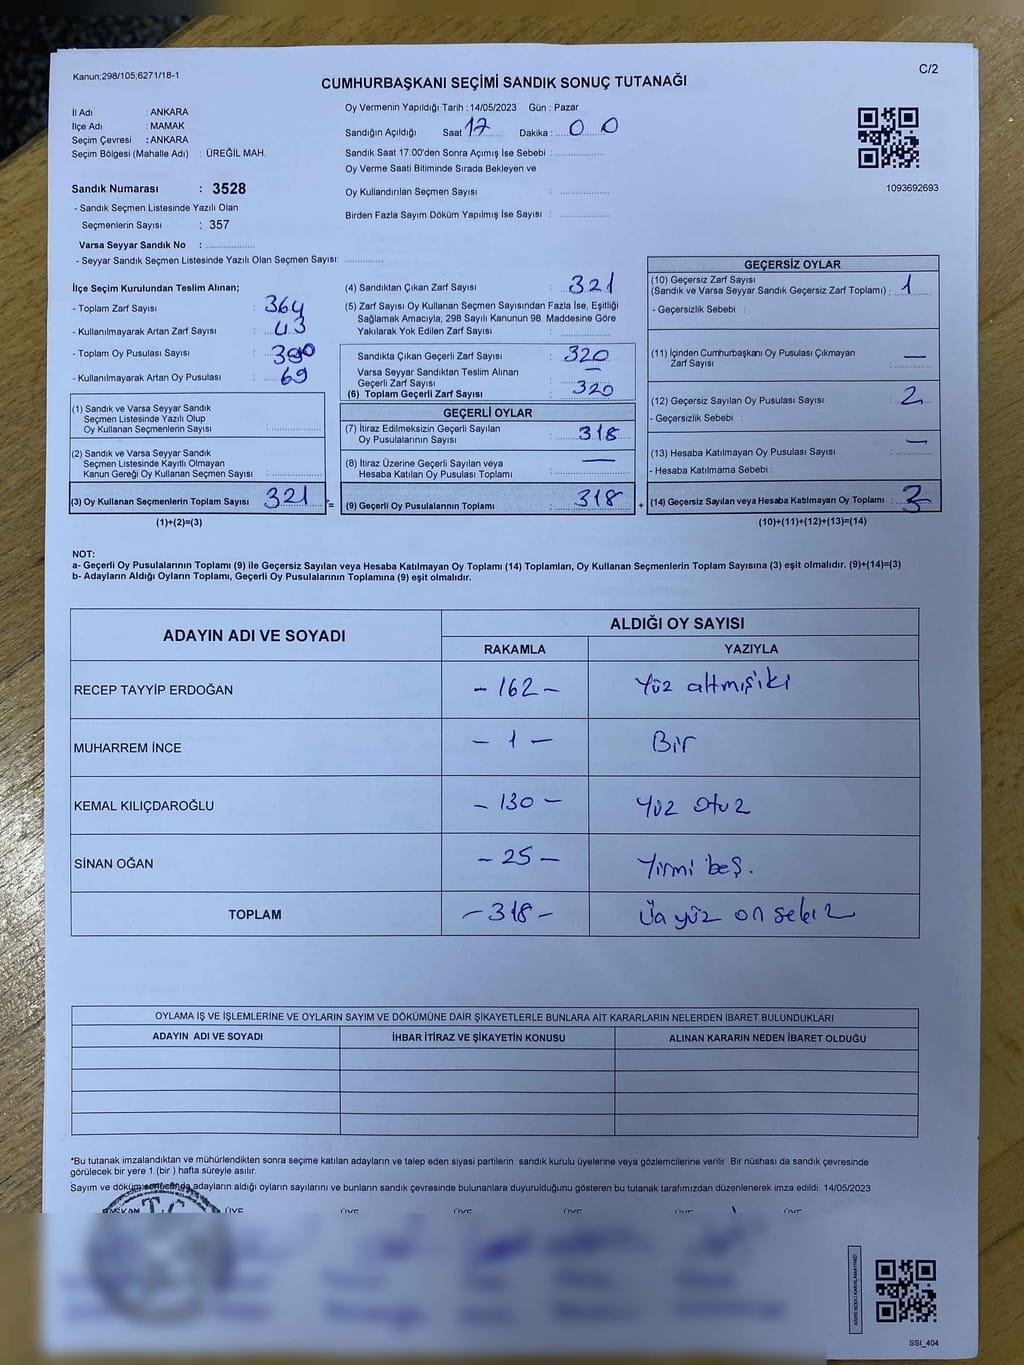 Kanun;298/105;6271/18-1
C/2
CUMHURBAŞKANI SEÇİMİ SANDIK SONUÇ TUTANAĞI
İl Adı : ANKARA
İlçe Adı : MAMAK
Seçim Çevresi : ANKARA
Seçim Bölgesi (Mahalle Adı) : ÜREĞİL MAH.
Sandık Numarası : 3528
- Sandık Seçmen Listesinde Yazılı Olan
Seçmenlerin Sayısı : 357
Varsa Seyyar Sandık No :
- Seyyar Sandık Seçmen Listesinde Yazılı Olan Seçmen Sayısı:
Oy Vermenin Yapıldığı Tarih :14/05/2023 Gün : Pazar
Sandığın Açıldığı Saat 17 Dakika : 0 0
Sandık Saat 17:00'den Sonra Açımış İse Sebebi :
Oy Verme Saati Bitiminde Sırada Bekleyen ve
Oy Kullandırılan Seçmen Sayısı :
Birden Fazla Sayım Döküm Yapılmış İse Sayısı :
1093692693
İlçe Seçim Kurulundan Teslim Alınan;
- Toplam Zarf Sayısı : 364
- Kullanılmayarak Artan Zarf Sayısı : 43
- Toplam Oy Pusulası Sayısı : 390
- Kullanılmayarak Artan Oy Pusulası : 69
(1) Sandık ve Varsa Seyyar Sandık
Seçmen Listesinde Yazılı Olup
Oy Kullanan Seçmenlerin Sayısı :
(2) Sandık ve Varsa Seyyar Sandık
Seçmen Listesinde Kayıtlı Olmayan
Kanun Gereği Oy Kullanan Seçmen Sayısı :
(3) Oy Kullanan Seçmenlerin Toplam Sayısı 321
(1)+(2)=(3)
(4) Sandıktan Çıkan Zarf Sayısı : 321
(5) Zarf Sayısı Oy Kullanan Seçmen Sayısından Fazla İse, Eşitliği
Sağlamak Amacıyla; 298 Sayılı Kanunun 98. Maddesine Göre
Yakılarak Yok Edilen Zarf Sayısı :
Sandıkta Çıkan Geçerli Zarf Sayısı : 320
Varsa Seyyar Sandıktan Teslim Alınan
Geçerli Zarf Sayısı : —
(6) Toplam Geçerli Zarf Sayısı : 320
GEÇERLİ OYLAR
(7) İtiraz Edilmeksizin Geçerli Sayılan
Oy Pusulalarının Sayısı : 318
(8) İtiraz Üzerine Geçerli Sayılan veya
Hesaba Katılan Oy Pusulası Toplamı : —
= (9) Geçerli Oy Pusulalarının Toplamı : 318 +
GEÇERSİZ OYLAR
(10) Geçersiz Zarf Sayısı
(Sandık ve Varsa Seyyar Sandık Geçersiz Zarf Toplamı) : 1
- Geçersizlik Sebebi :
(11) İçinden Cumhurbaşkanı Oy Pusulası Çıkmayan
Zarf Sayısı : —
(12) Geçersiz Sayılan Oy Pusulası Sayısı : 2
- Geçersizlik Sebebi :
(13) Hesaba Katılmayan Oy Pusulası Sayısı : —
- Hesaba Katılmama Sebebi :
(14) Geçersiz Sayılan veya Hesaba Katılmayan Oy Toplamı : 3
(10)+(11)+(12)+(13)=(14)
NOT:
a- Geçerli Oy Pusulalarının Toplamı (9) ile Geçersiz Sayılan veya Hesaba Katılmayan Oy Toplamı (14) Toplamları, Oy Kullanan Seçmenlerin Toplam Sayısına (3) eşit olmalıdır. (9)+(14)=(3)
b- Adayların Aldığı Oyların Toplamı, Geçerli Oy Pusulalarının Toplamına (9) eşit olmalıdır.
ADAYIN ADI VE SOYADI
ALDIĞI OY SAYISI
RAKAMLA YAZIYLA
RECEP TAYYİP ERDOĞAN - 162 - Yüz altmışiki
MUHARREM İNCE - 1 - Bir
KEMAL KILIÇDAROĞLU - 130 - Yüz Otuz
SİNAN OĞAN - 25 - Yirmi beş.
TOPLAM - 318 - Üç yüz on sekiz
OYLAMA İŞ VE İŞLEMLERİNE VE OYLARIN SAYIM VE DÖKÜMÜNE DAİR ŞİKAYETLERLE BUNLARA AİT KARARLARIN NELERDEN İBARET BULUNDUKLARI
ADAYIN ADI VE SOYADI İHBAR İTİRAZ VE ŞİKAYETİN KONUSU ALINAN KARARIN NEDEN İBARET OLDUĞU
*Bu tutanak imzalandıktan ve mühürlendikten sonra seçime katılan adayların ve talep eden siyasi partilerin sandık kurulu üyelerine veya gözlemcilerine verilir Bir nüshası da sandık çevresinde
görülecek bir yere 1 (bir ) hafta süreyle asılır.
Sayım ve döküm sonucunda adayların aldığı oyların sayılarını ve bunların sandık çevresinde bulunanlara duyurulduğunu gösteren bu tutanak tarafımızdan düzenlenerek imza edildi. 14/05/2023
BAŞKAN ÜYE ÜYE ÜYE ÜYE ÜYE ÜYE
T.C.
SSİ_404